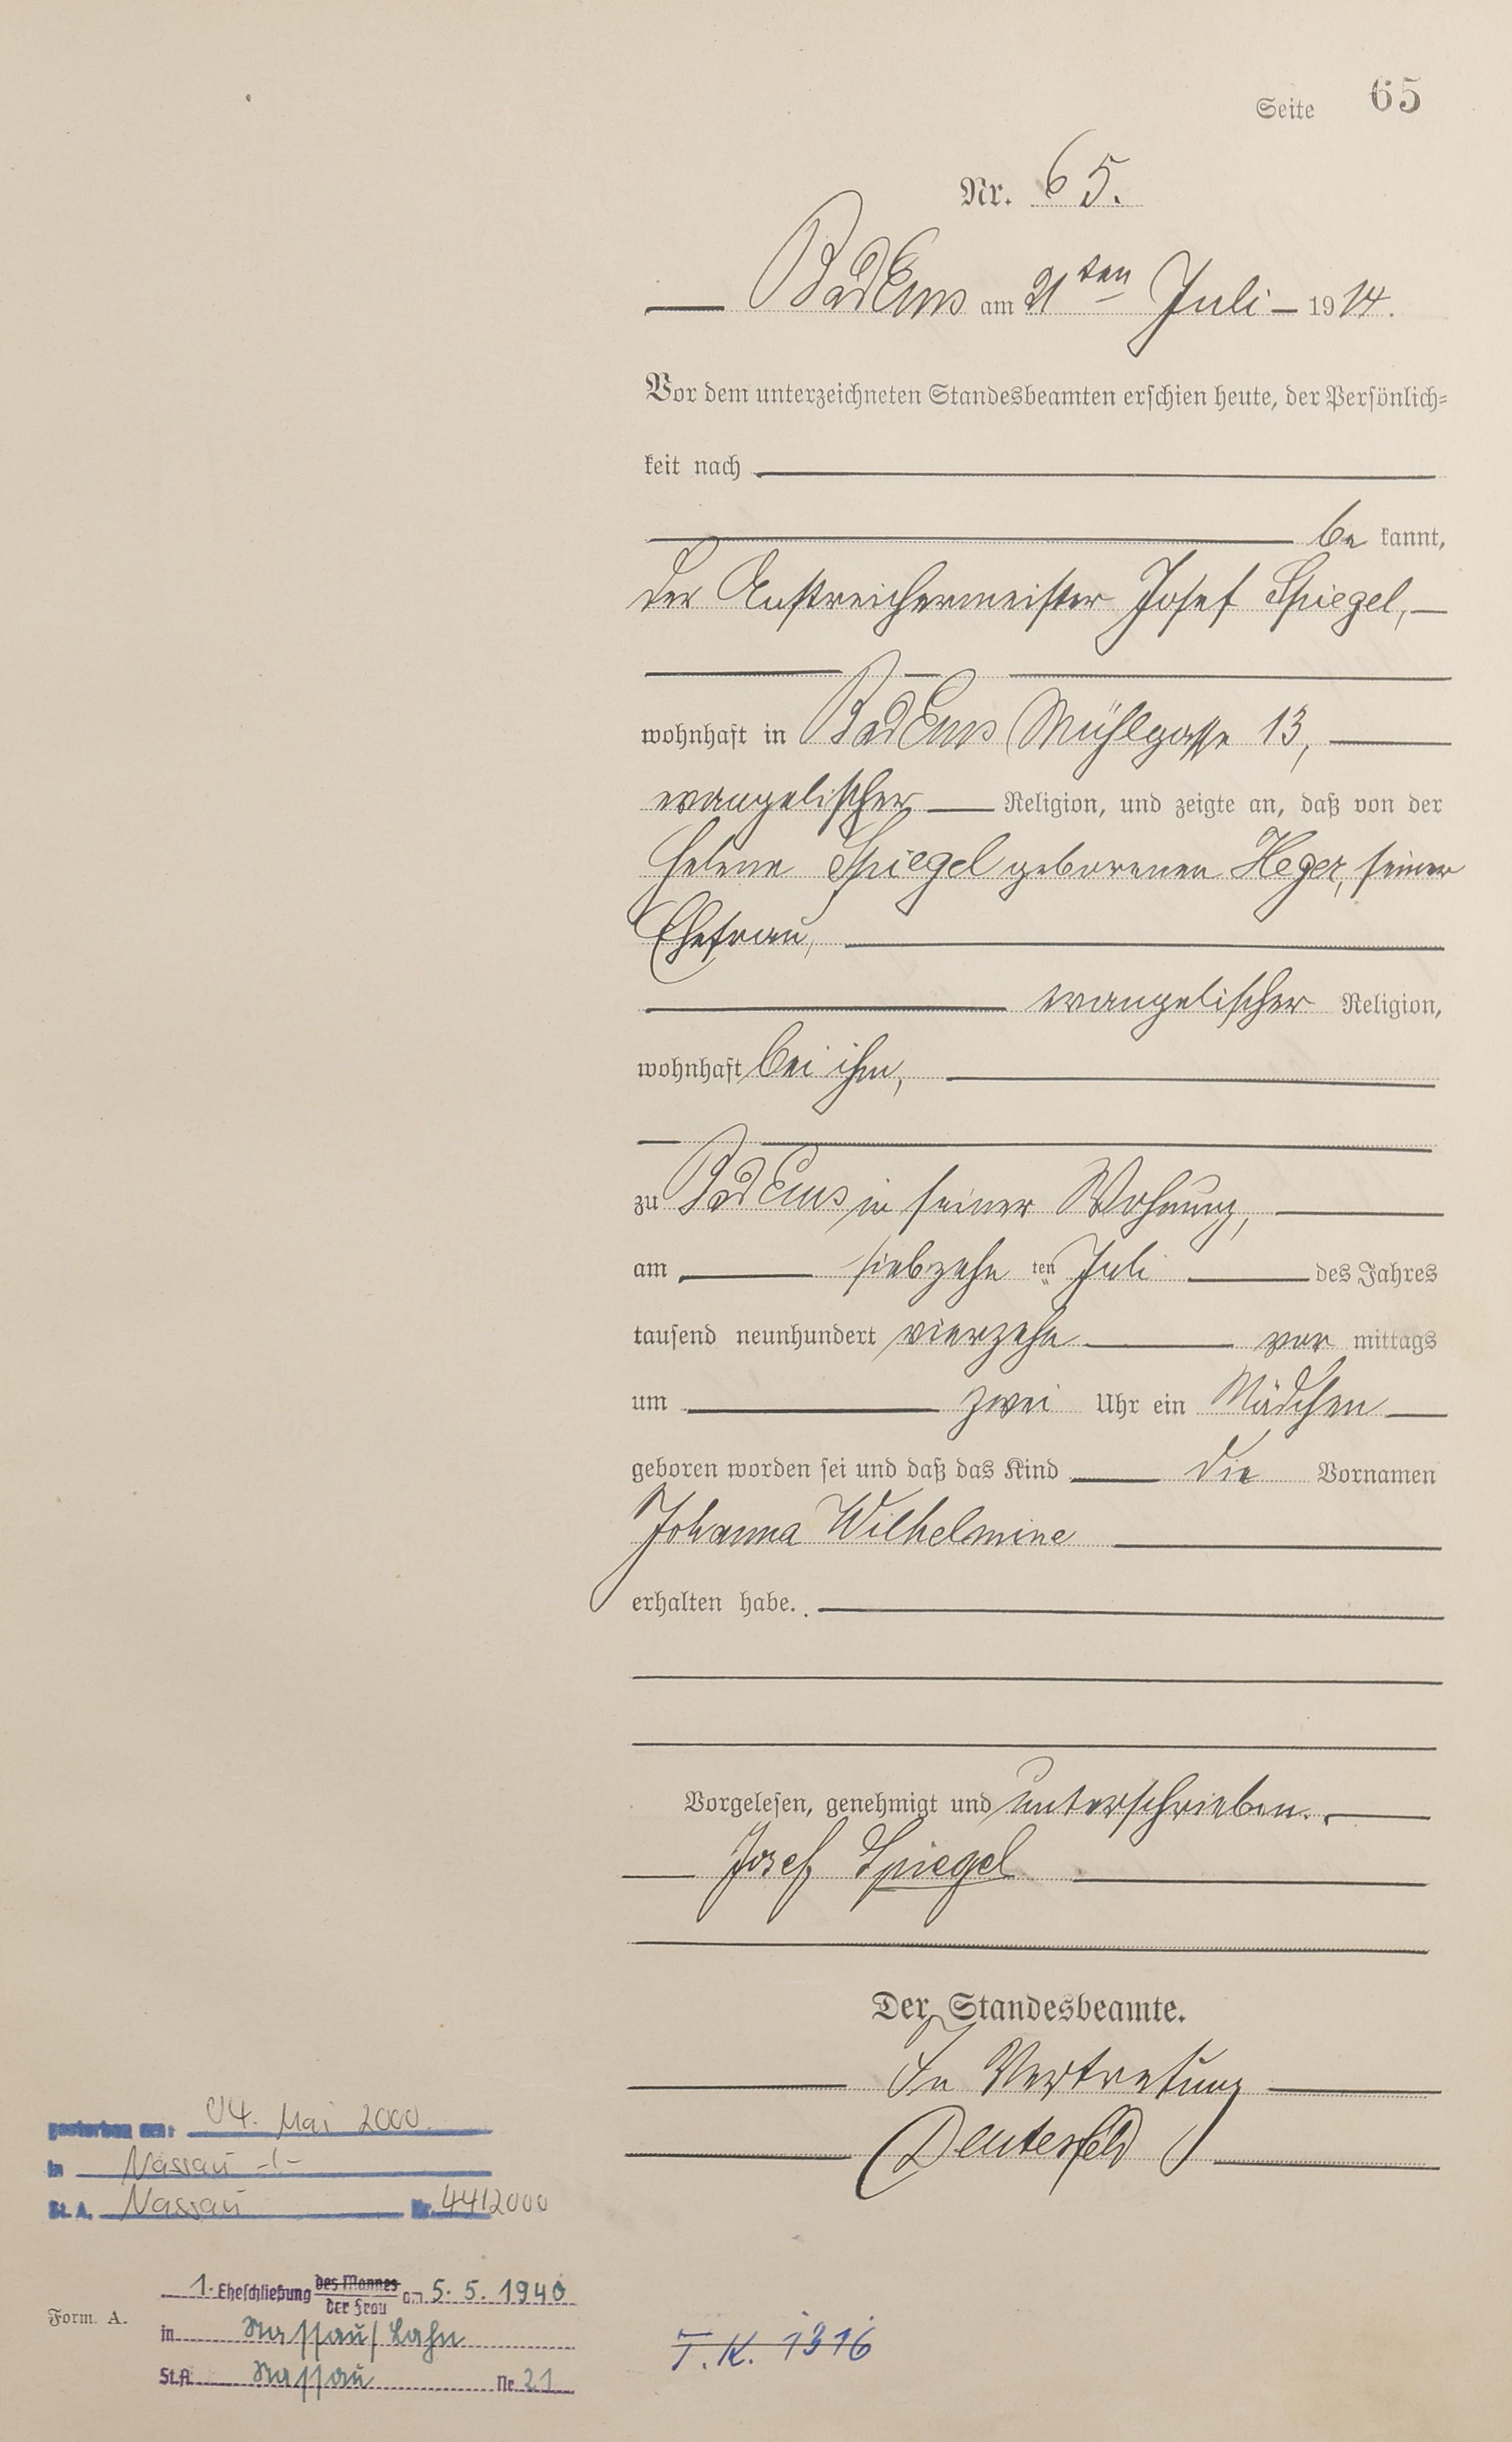 Seite 65
Nr. 65.
Bad Ems am 21ten Juli 1914.
Vor dem unterzeichneten Standesbeamten erschien heute, der Persönlich=
keit nach
be kannt,
der Anstreichermeister Josef Spiegel,
wohnhaft in Bad Ems Mühlgasse 13,
evangelischer Religion, und zeigte an, daß von der
Helene Spiegel geborenen Heger, seiner
Ehefrau,
evangelischer Religion,
wohnhaft bei ihm,
zu Bad Ems in seiner Wohnung,
am siebzehn ten Juli des Jahres
tausend neunhundert vierzehn vor mittags
um zwei Uhr ein Mädchen
geboren worden sei und daß das Kind die Vornamen
Johanna Wilhelmine
erhalten habe.
Vorgelesen, genehmigt und unterschrieben.
Josef Spiegel
Der Standesbeamte.
In Vertretung
gestorben am: 04. Mai 2000
in Nassau -/-
St. A. Nassau Nr. 44/2000
1. Eheschließung des Mannes
der Frau am 5. 5. 1940
Form. A.
in Nassau/Lahn
St.A. Nassau Nr. 21
T. K. 1316